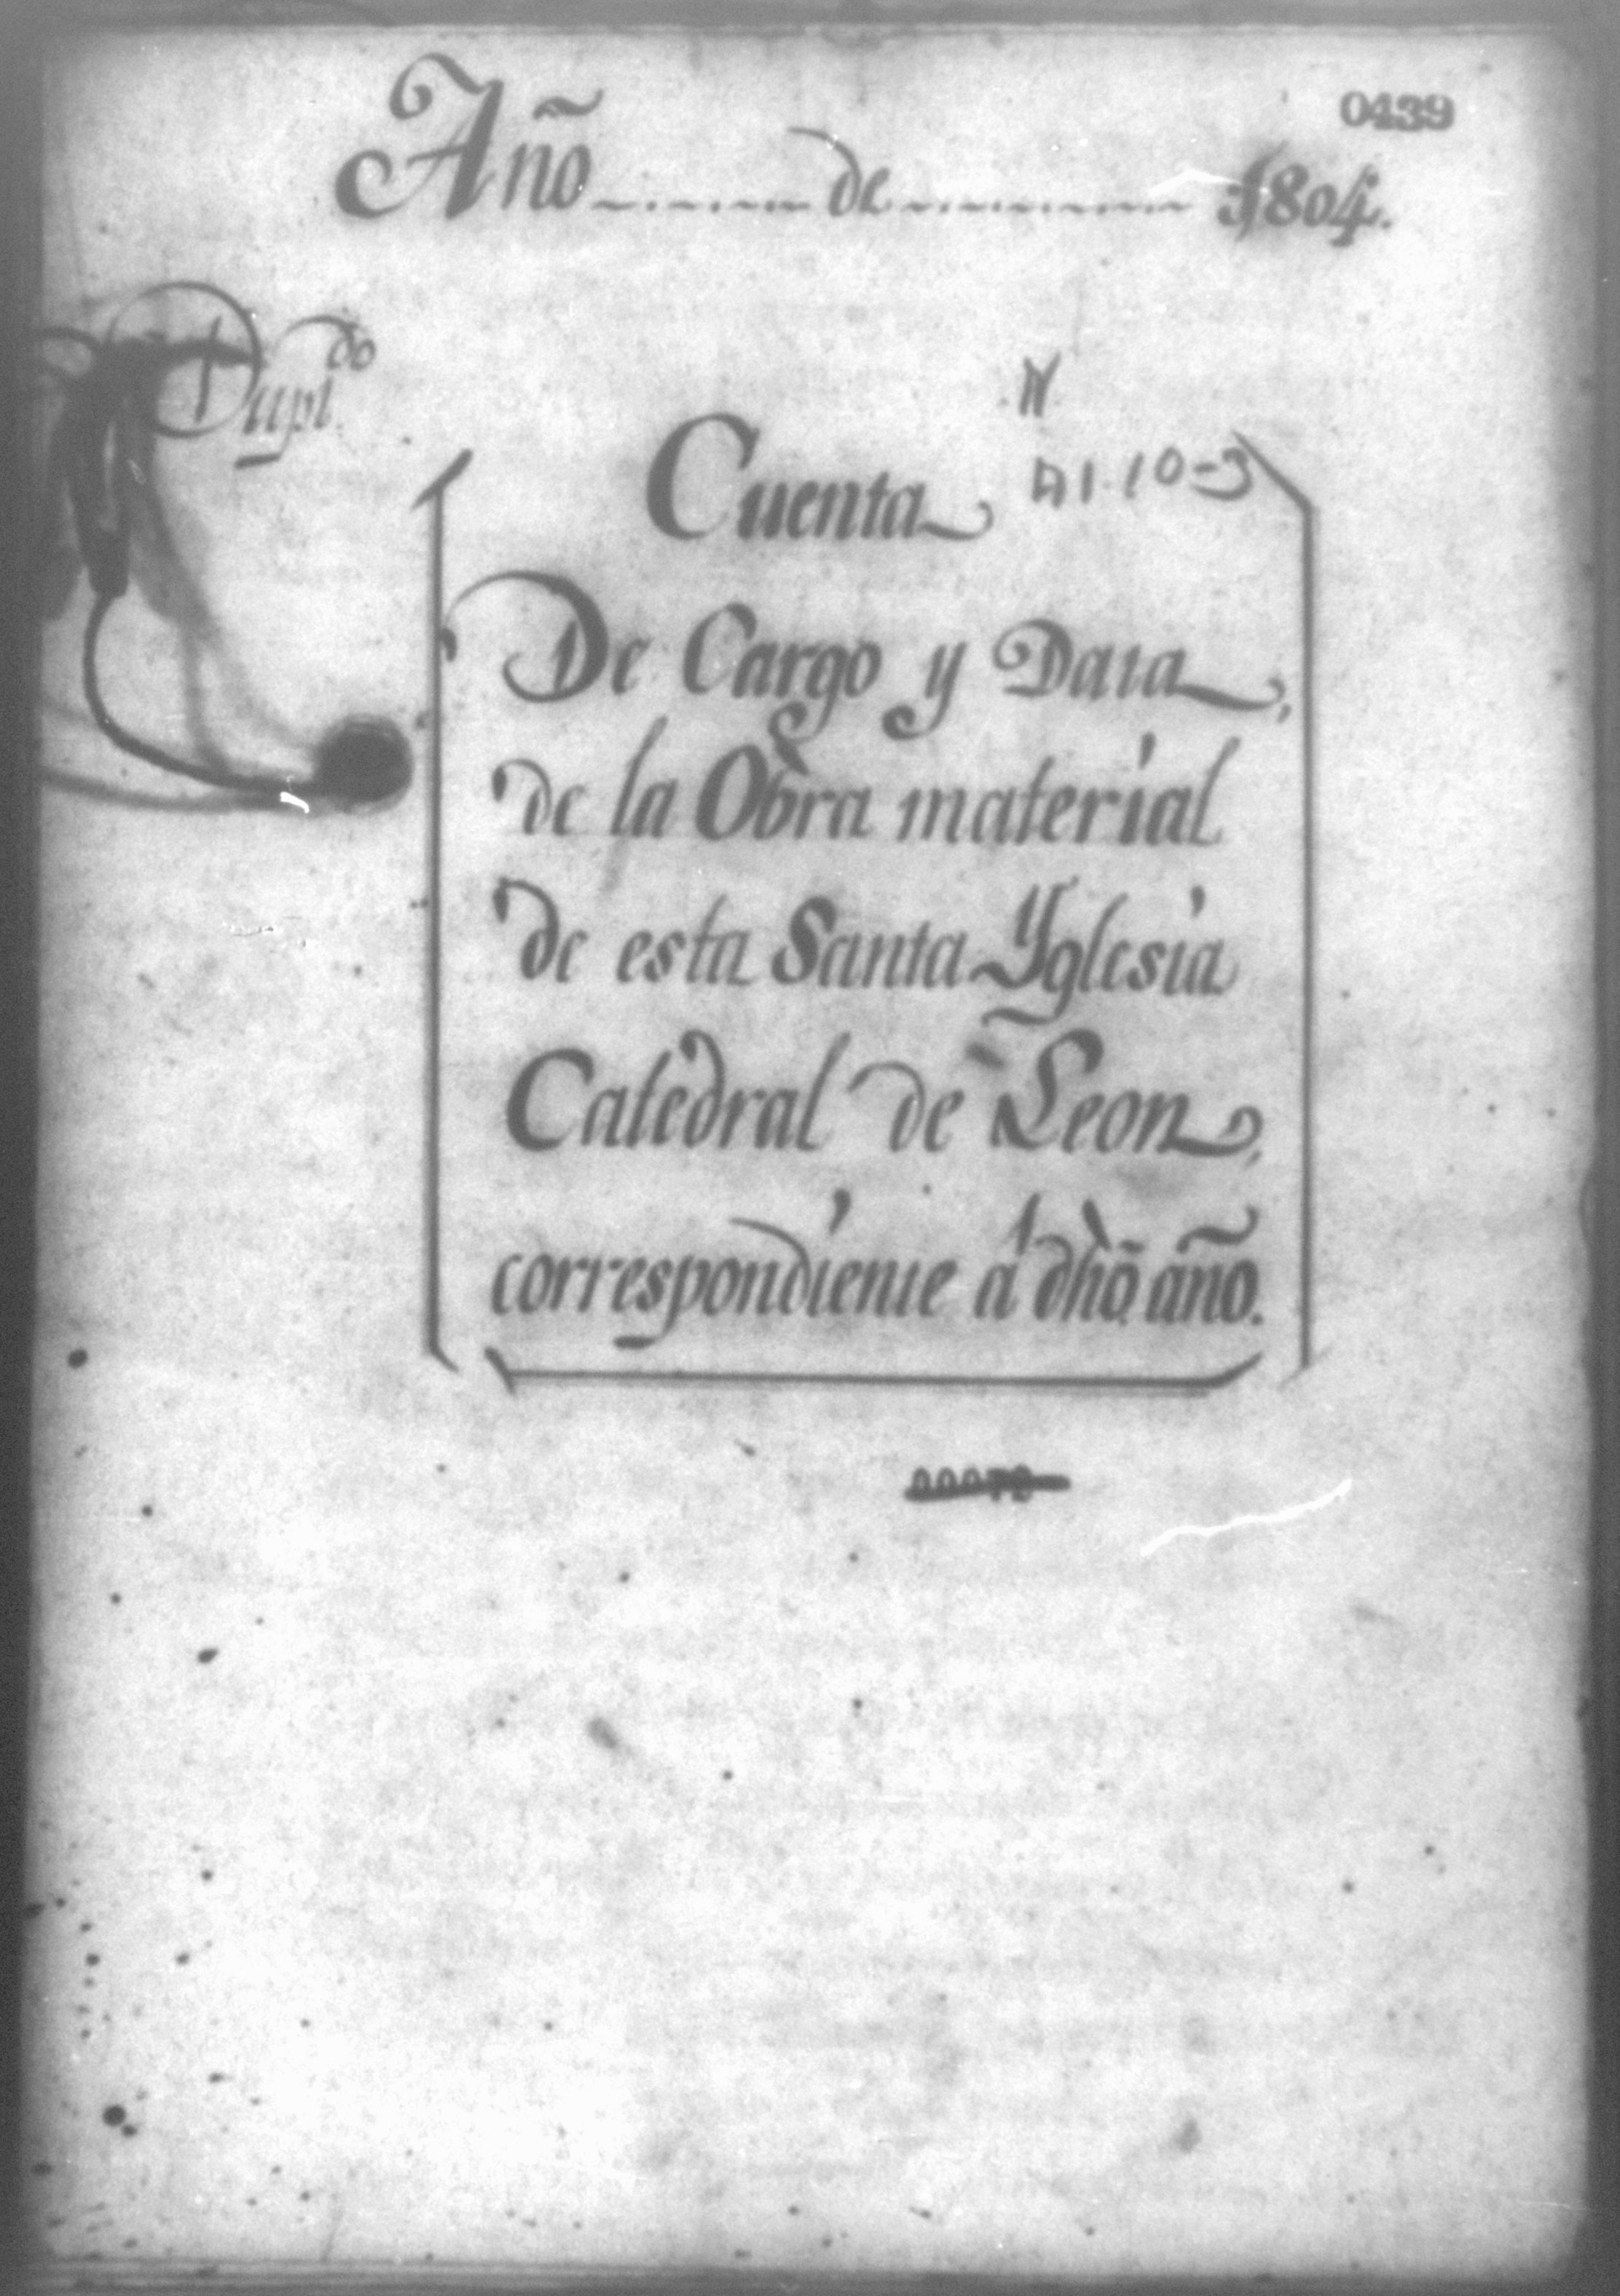 0439
Año de 1804.
Dupl.do
N
A1.10-3
Cuenta
De Cargo y Data,
de la Obra material
de esta Santa Yglesia
Catedral de Leon,
correspondiente á dho. año.